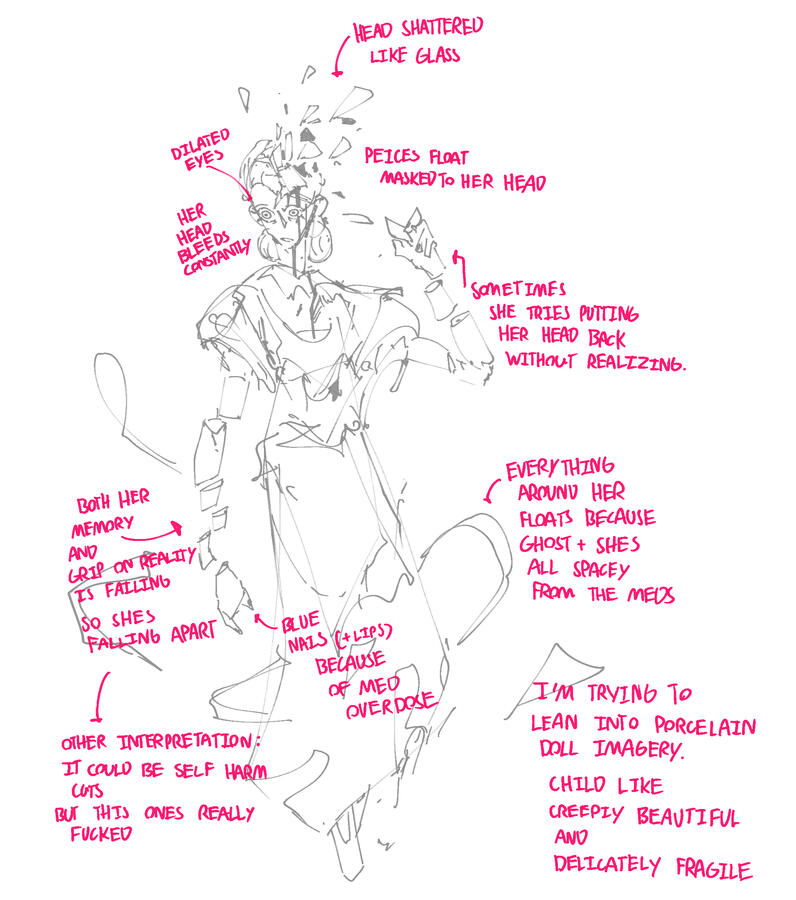 HEAD SHATTERED
LIKE GLASS
DILATED
EYES
PEICES FLOAT
MASKED TO HER HEAD
HER
HEAD
BLEEDS
CONSTANTLY
SOMETIMES
SHE TRIES PUTTING
HER HEAD BACK
WITHOUT REALIZING.
BOTH HER
MEMORY
AND
GRIP ON REALITY
IS FAILING
SO SHES
FALLING APART
EVERYTHING
AROUND HER
FLOATS BECAUSE
GHOST + SHES
ALL SPACEY
FROM THE MEDS
BLUE
NAILS (+LIPS)
BECAUSE
OF MED
OVERDOSE
OTHER INTERPRETATION:
IT COULD BE SELF HARM
CUTS
BUT THIS ONES REALLY
FUCKED
I'M TRYING TO
LEAN INTO PORCELAIN
DOLL IMAGERY.
CHILD LIKE
CREEPIY BEAUTIFUL
AND
DELICATELY FRAGILE